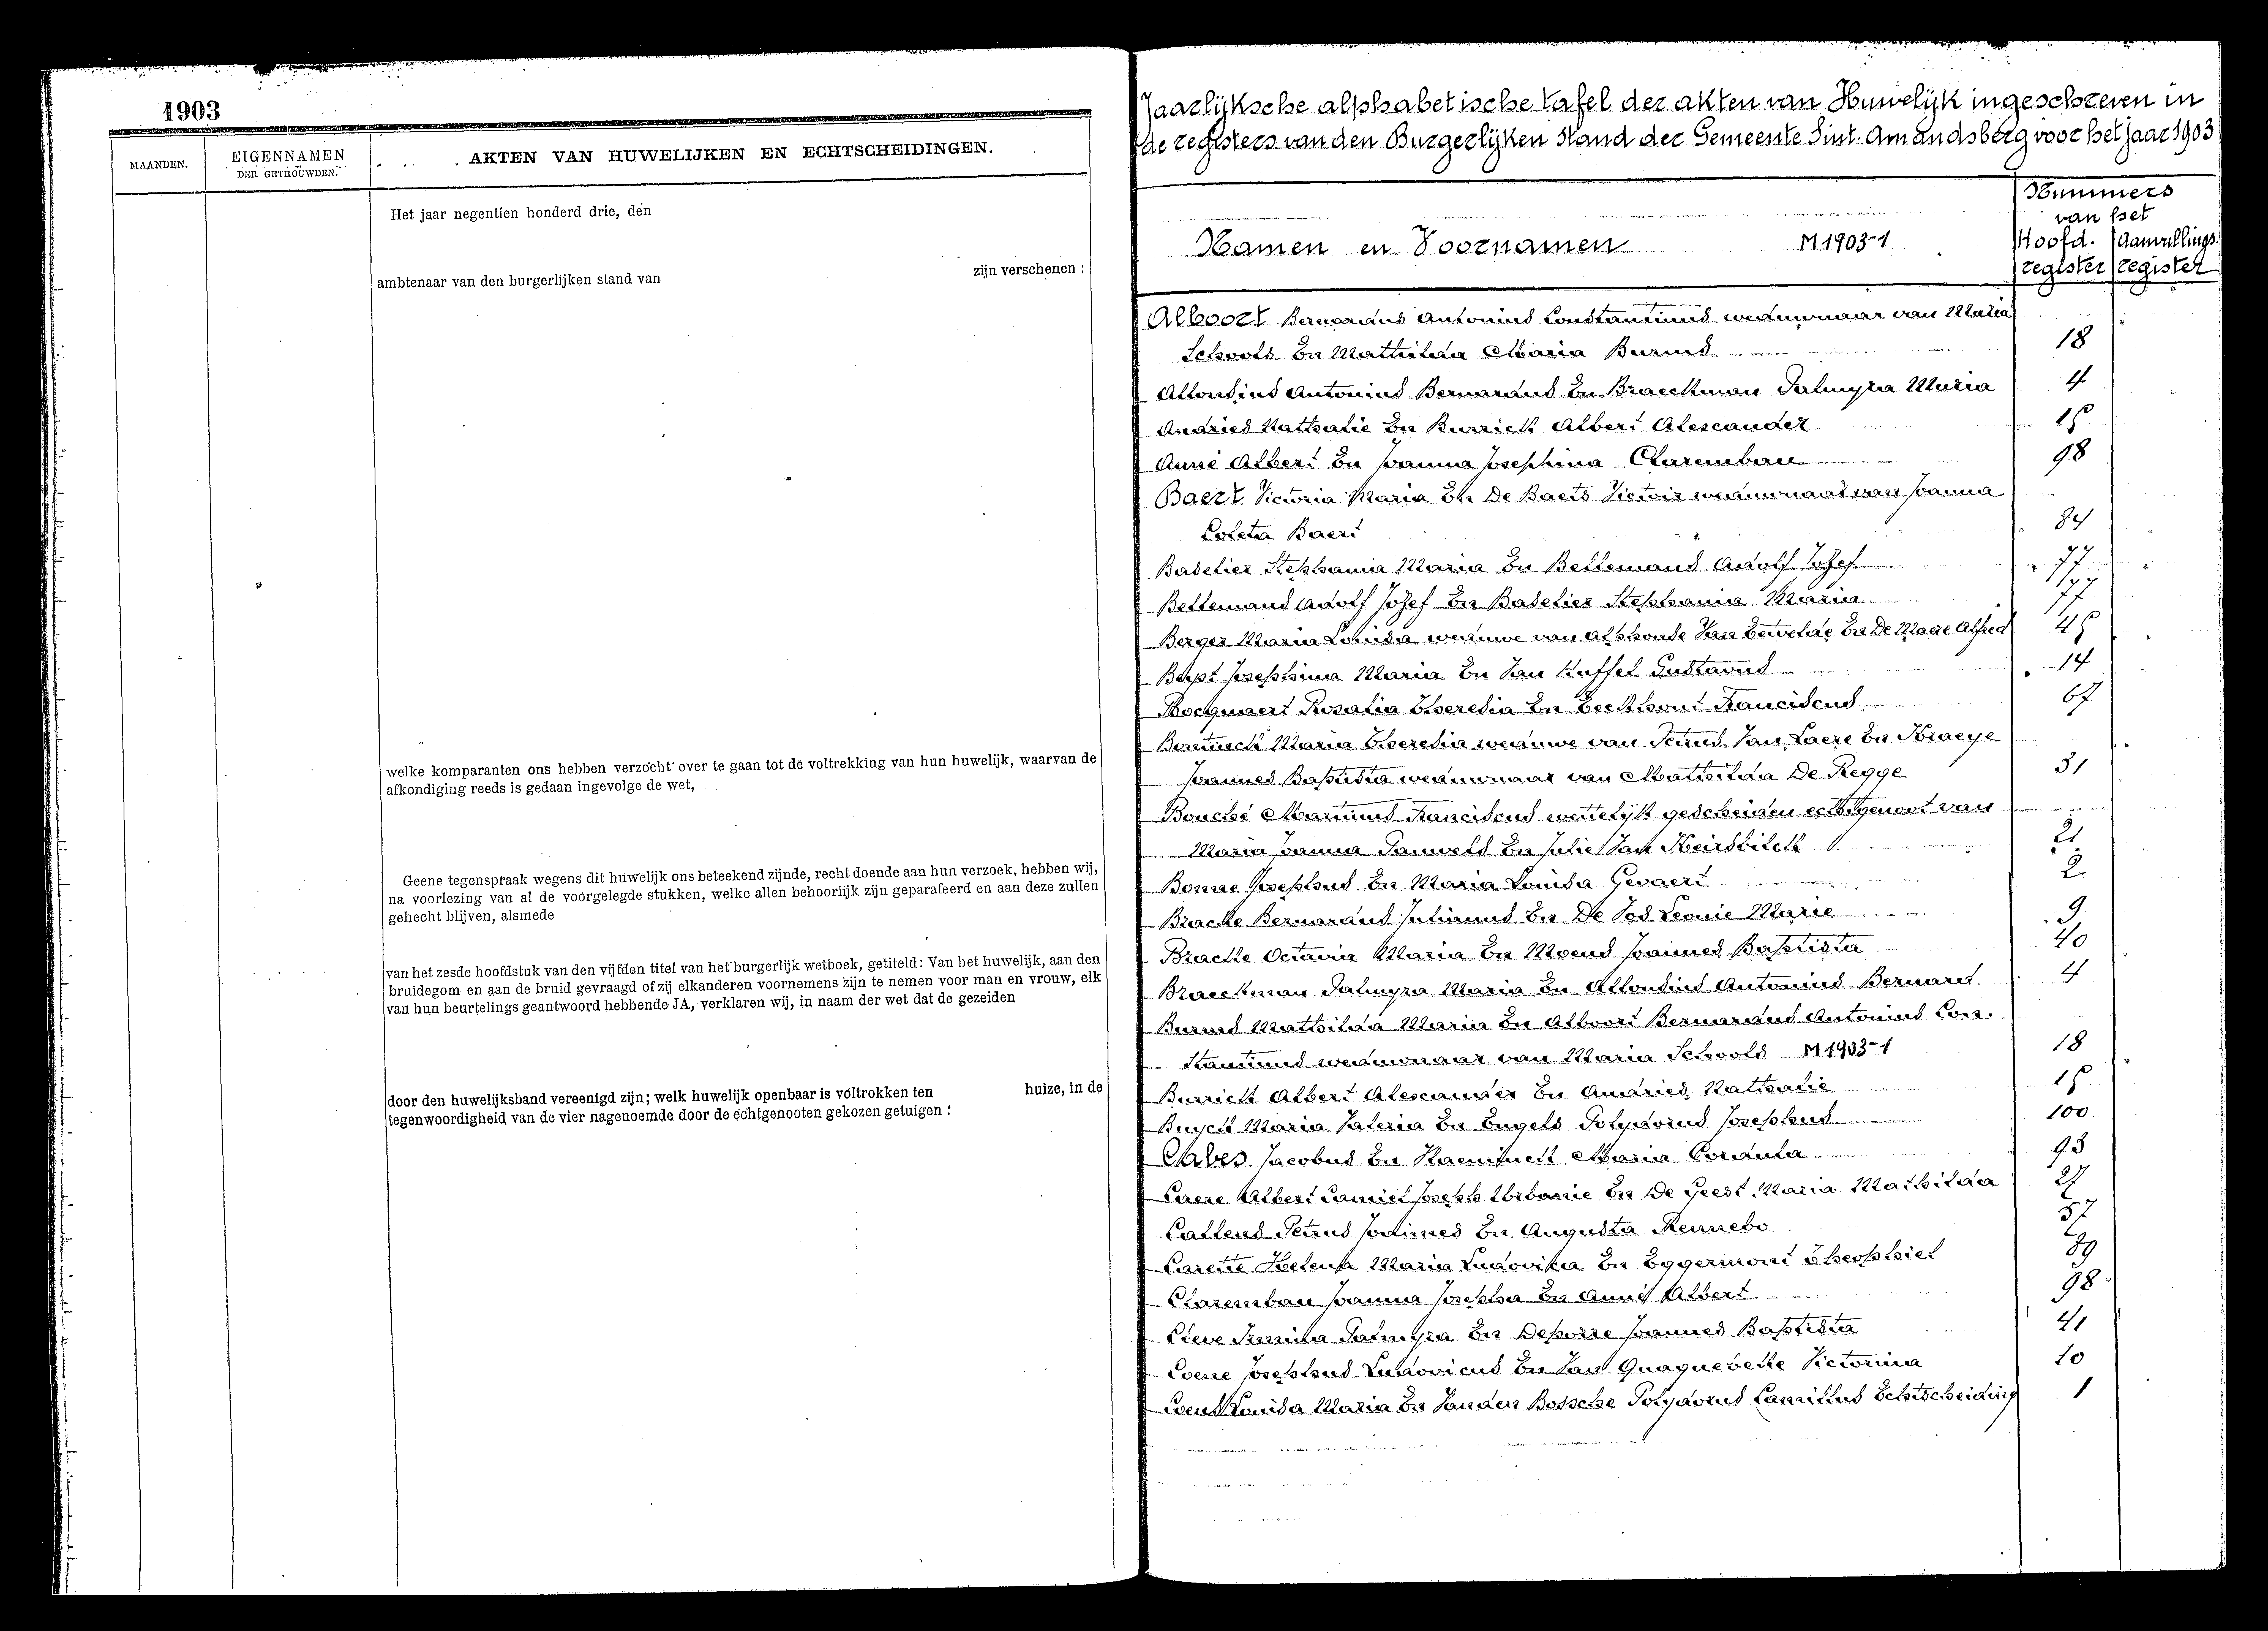 1903
MAANDEN.
EIGENNAMEN
DER GETROUWDEN.
AKTEN VAN HUWELIJKEN EN ECHTSCHEIDINGEN.
Het jaar negentien honderd drie, den
ambtenaar van den burgerlijken stand van zijn verschenen :
welke komparanten ons hebben verzocht over te gaan tot de voltrekking van hun huwelijk, waarvan de
afkondiging reeds is gedaan ingevolge de wet,
Geene tegenspraak wegens dit huwelijk ons beteekend zijnde, recht doende aan hun verzoek, hebben wij,
na voorlezing van al de voorgelegde stukken, welke allen behoorlijk zijn geparafeerd en aan deze zullen
gehecht blijven, alsmede
van het zesde hoofdstuk van den vijfden titel van het burgerlijk wetboek, getiteld: Van het huwelijk, aan den
bruidegom en aan de bruid gevraagd of zij elkanderen voornemens zijn te nemen voor man en vrouw, elk
van hun beurtelings geantwoord hebbende JA, verklaren wij, in naam der wet dat de gezeiden
door den huwelijksband vereenigd zijn; welk huwelijk openbaar is voltrokken ten huize, in de
tegenwoordigheid van de vier nagenoemde door de echtgenooten gekozen getuigen :
Jaarlijksche alphabetische tafel der akten van Huwelijk ingeschreven in
de registers van den Burgerlijken Stand der Gemeente Sint-Amandsberg voor het jaar 1903
Namen en Voornamen M1903-1
Nummers
van het
Hoofd- Aanvullings
register register
Alboort Bernardus Antonius Constantinus weduwnaar van Maria
Schools En Mathilda Maria Burms 18
Alfonsius Antonius Bernardus En Braeckman Palmyra Maria 4
Andries Nathalie En Burrick Albert Alexander
Anné Albert En Joanna Josephina Clarembau 98
Baert Victoria Maria En De Baets Victor weduwnaar van Joanna
Coleta Baert 84
Badelier Stephania Maria En Bellemans Adolf Jozef 77
Bellemans Adolf Jozef En Badelier Stephania Maria 77
Berger Maria Louisa weduwe van Alphonse Van En De Maere Alfred
Josephina Maria En Van Gustavus 14
Bocquaert Rosalia Theresia En Franciscus 67
Maria Theresia weduwe van Petrus Van Laere En Braeye
Joannes Baptista weduwnaar van Mathilda De Regge 31
Bouché Marinus Franciscus wettelijk gescheiden echtgenoot van
Maria Joanna Pauwels En Julie Van 21
Bonne Josephus En Maria Louisa Gevaert 2
Bracke Bernardus Julianus En De Vos Leonie Marie 9
Bracke Octavia Maria En Moens Joannes Baptista 40
Braeckman Palmyra Maria En Alfonsius Antonius Bernard 4
Burms Mathilda Maria En Alboort Bernardus Antonius Con-
stantinus weduwnaar van Maria Schools M1903-1 18
Burrick Albert Alexander En Andries Nathalie
Buyck Maria Valeria En Engels Polydorus Josephus 100
Jacobus En Maria Cordula 93
Albert Camiel Joseph Urbanie En De Geest Maria Mathilda 27
Callens Petrus Joannes En Augusta 57
Carette Helena Maria Ludovika En Eggermont Theophiel 89
Clarembau Joanna Josepha En Anné Albert 98
Irmina Palmyra En Deporre Joannes Baptista 41
Coene Josephus Ludovicus En Van Quaquebeke Victorina 10
Coens Louisa Maria En Vanden Bossche Polydorus Camillus Echtscheiding 1